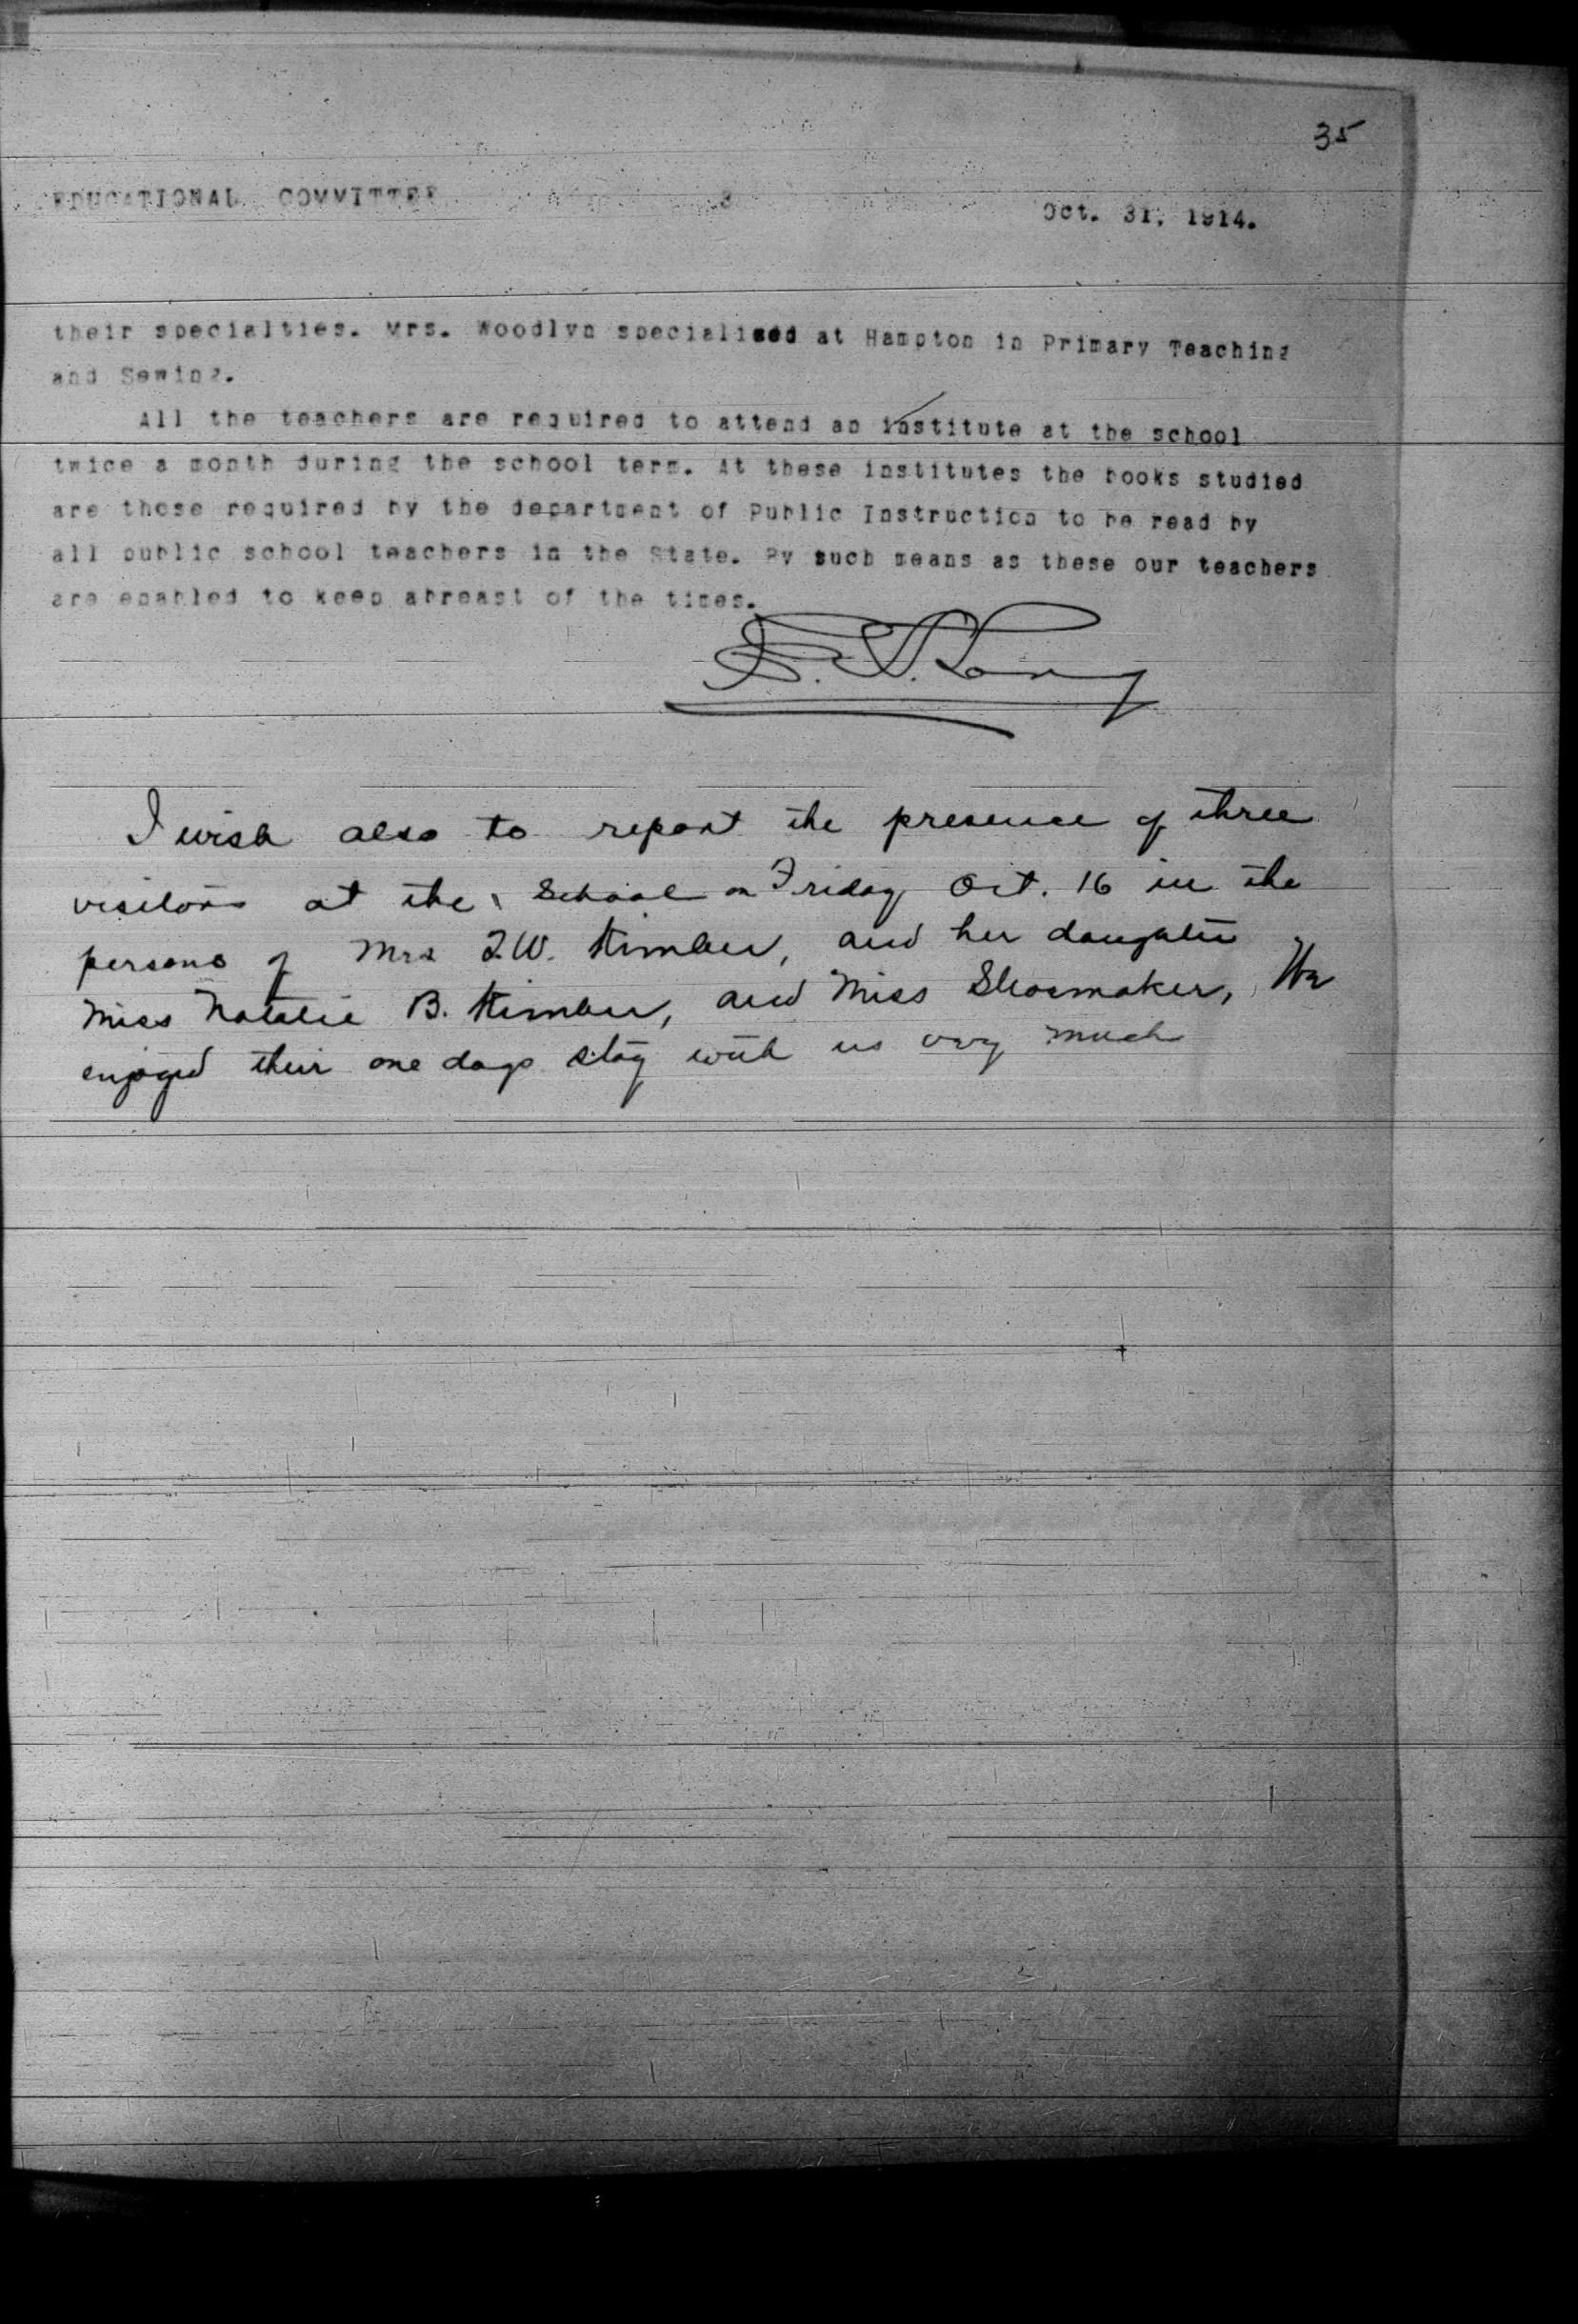 35
EDUCATIONAL COMMITTEE 3 Oct. 31, 1914.
their specialties. Mrs. Woodlyn specialized at Hampton in Primary Teaching
and Sewing.
All the teachers are required to attend an institute at the school
twice a month during the school term. At these institutes the books studied
are those required by the department of Public Instruction to be read by
all public school teachers in the State. By such means as these our teachers
are enabled to keep abreast of the times.
I wish also to report the presence of three
visitors at the School on Friday Oct. 16 in the
persons of Mrs T.W. Kimber, and her daughter
Miss Natalie B. Kimber, and Miss Shoemaker, We
enjoyed their one days stay with us very much